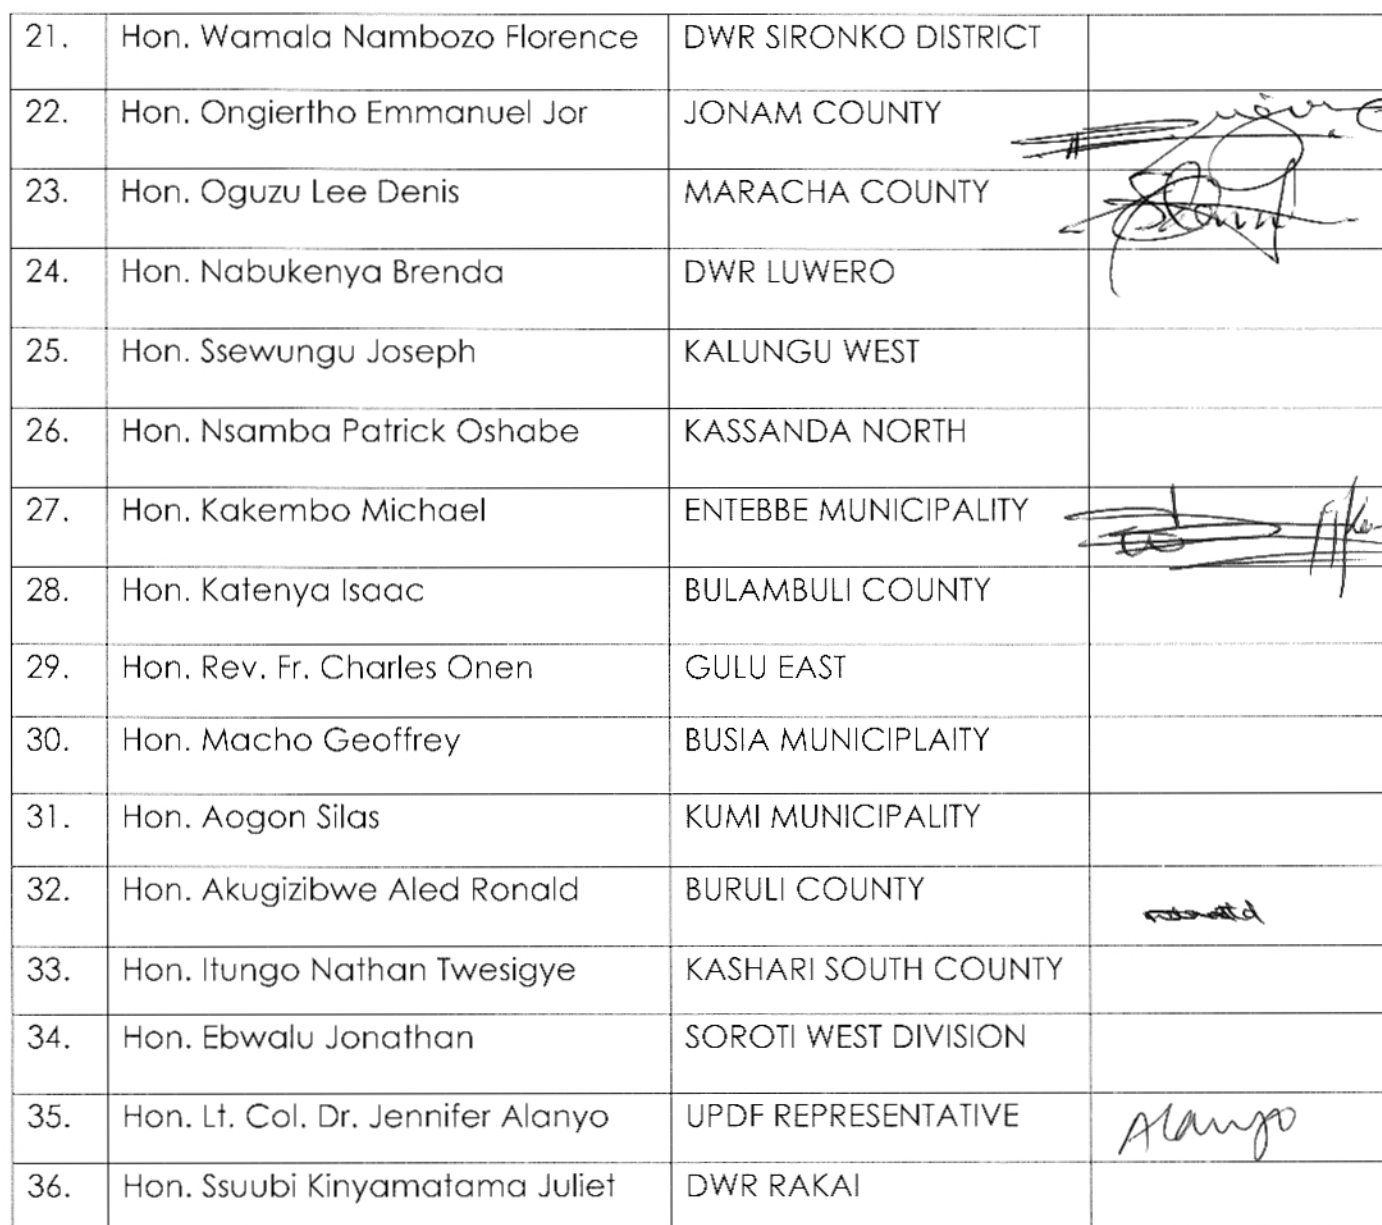 21. Hon. Wamala Nambozo Florence DWR SIRONKO DISTRICT
22. Hon. Ongiertho Emmanuel Jor JONAM COUNTY
23. Hon. Oguzu Lee Denis MARACHA COUNTY
24. Hon. Nabukenya Brenda DWR LUWERO
25. Hon. Ssewungu Joseph KALUNGU WEST
26. Hon. Nsamba Patrick Oshabe KASSANDA NORTH
27. Hon. Kakembo Michael ENTEBBE MUNICIPALITY
28. Hon. Katenya Isaac BULAMBULI COUNTY
29. Hon. Rev. Fr. Charles Onen GULU EAST
30. Hon. Macho Geoffrey BUSIA MUNICIPLAITY
31. Hon. Aogon Silas KUMI MUNICIPALITY
32. Hon. Akugizibwe Aled Ronald BURULI COUNTY
33. Hon. Itungo Nathan Twesigye KASHARI SOUTH COUNTY
34. Hon. Ebwalu Jonathan SOROTI WEST DIVISION
35. Hon. Lt. Col. Dr. Jennifer Alanyo UPDF REPRESENTATIVE Alanyo
36. Hon. Ssuubi Kinyamatama Juliet DWR RAKAI